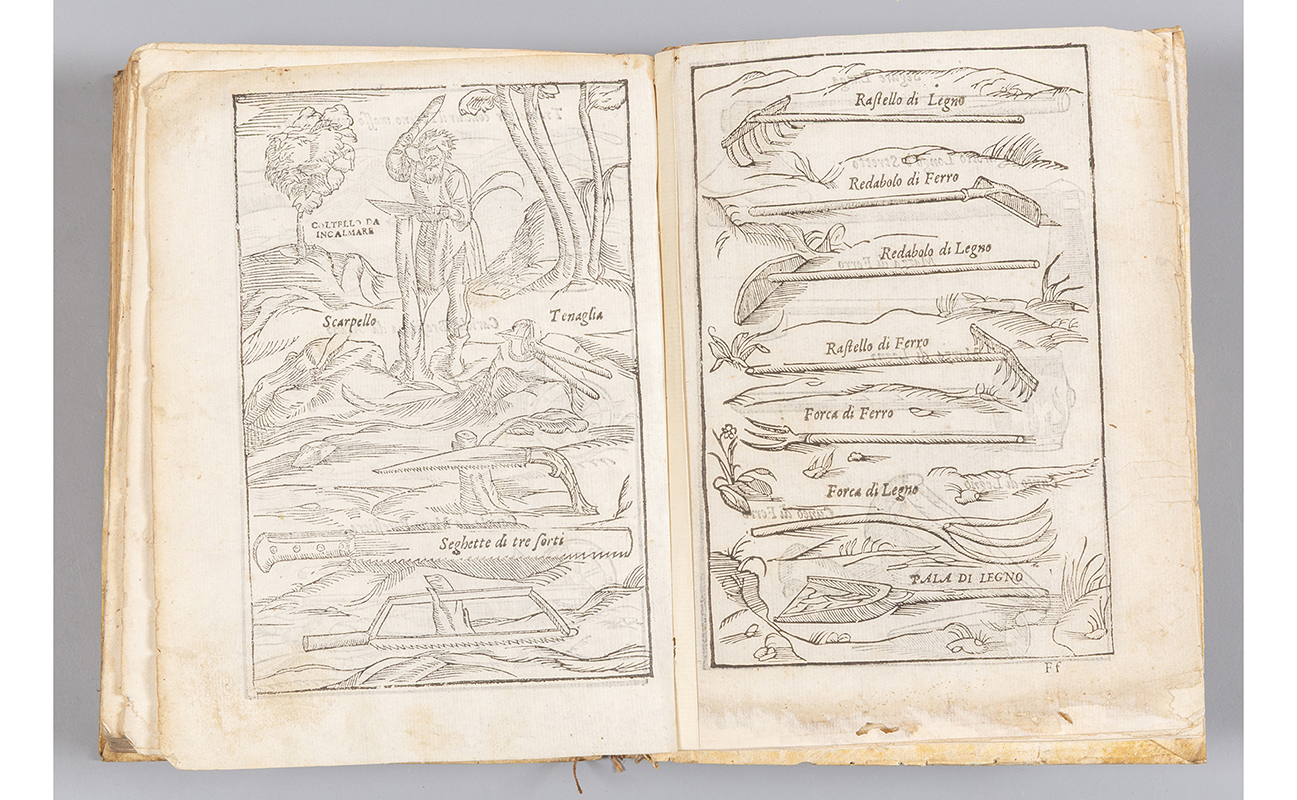 COLTELLO DA
INCALMARE
Scarpello
Tenaglia
Seghette di tre ſorti
Raſtello di Legno
Redabolo di Ferro
Redabolo di Legno
Raſtello di Ferro
Forca di Ferro
Forca di Legno
PALA DI LEGNO
Ff